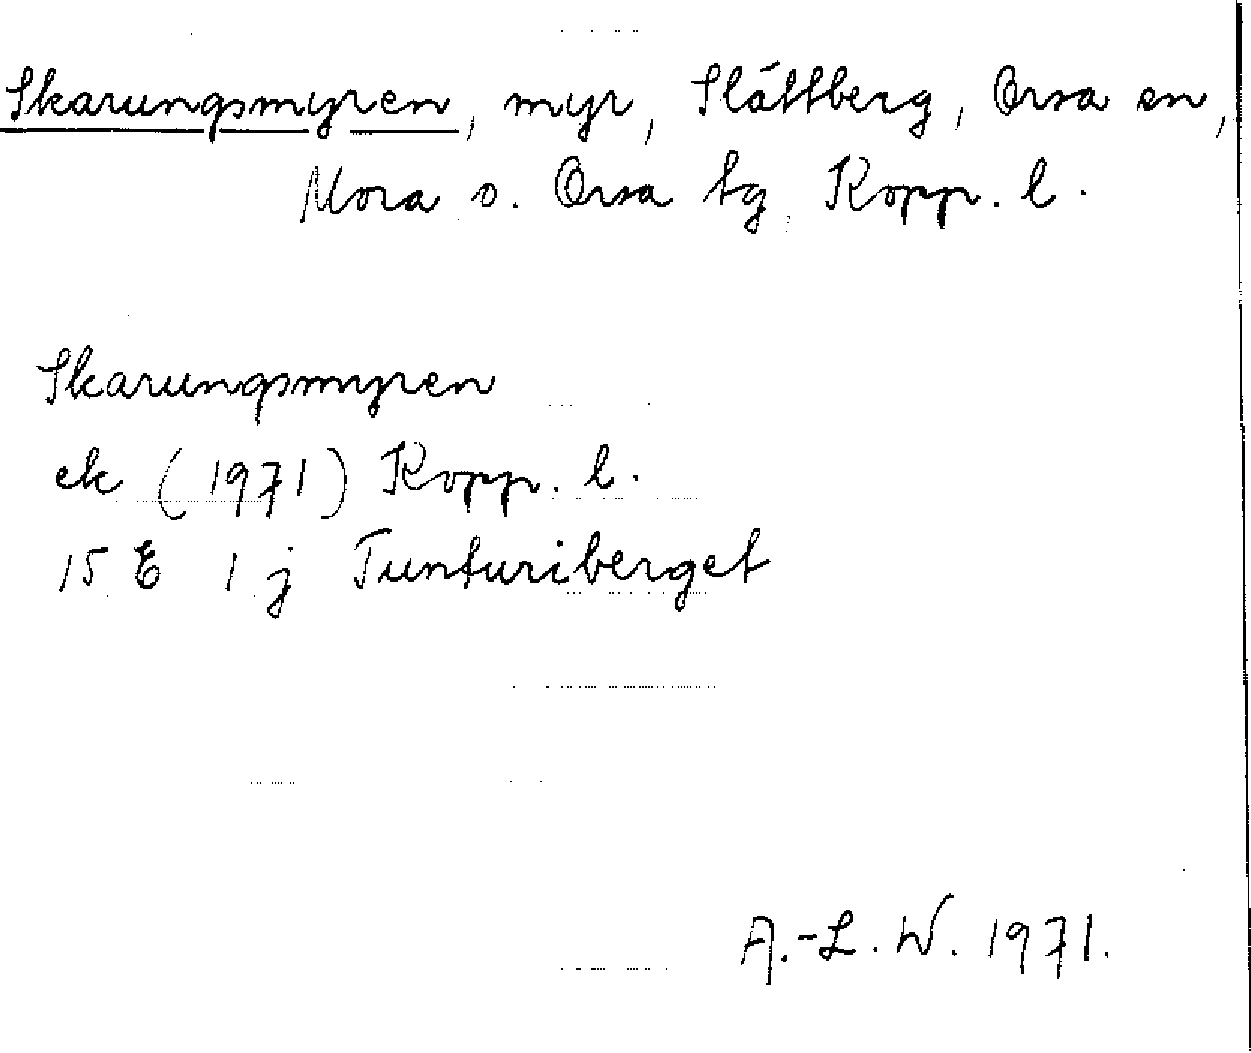 Skarungsmyren, myr, Slättberg, Orsa sn,
Mora o. Orsa tg, Kopp. l.
Skarungsmyren
ek (1971) Kopp. l.
15 E 1 j Tunturiberget
A.-L. W. 1971.